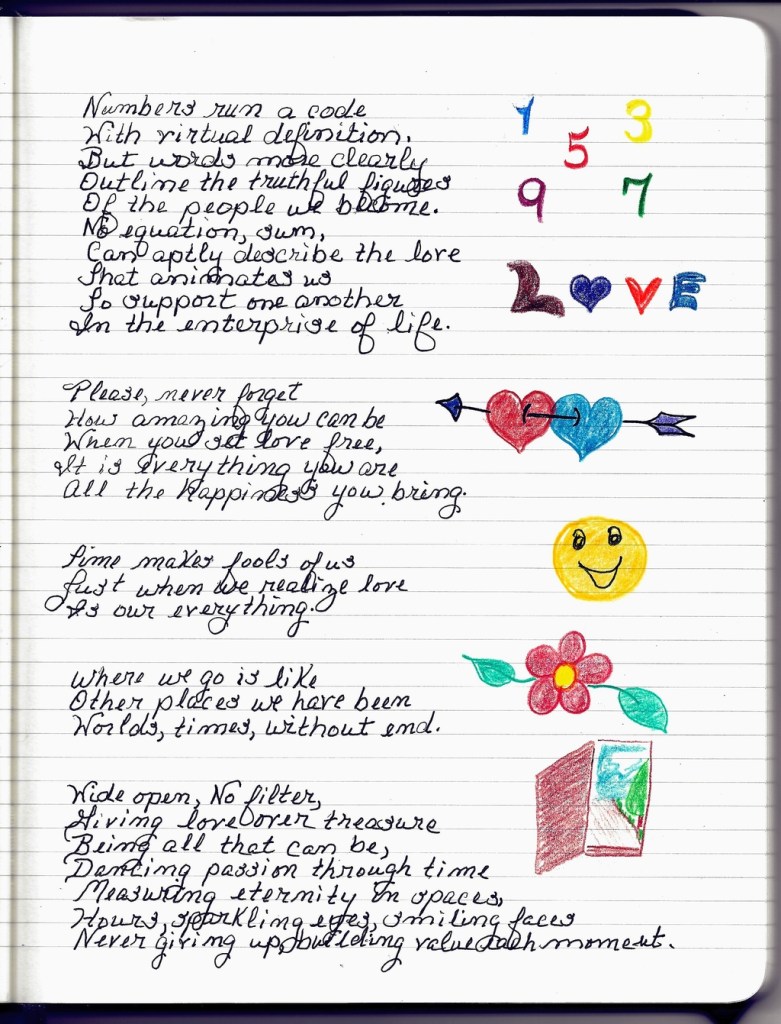 Numbers run a code
With virtual definition.
But words more clearly
Outline the truthful figures
Of the people we become.
No equation, sum,
Can aptly describe the love
That animates us
To support one another
In the enterprise of life.
1 3
5
9 7
LOVE
Please, never forget
How amazing you can be
When you set love free,
It is everything you are
All the happiness you bring.
Time makes fools of us
Just when we realize love
Is our everything.
Where we go is like
Other places we have been
Worlds, times, without end.
Wide open, No filter,
Giving love over treasure
Being all that can be,
Dancing passion through time
Measuring eternity in spaces,
Hours, sparkling eyes, smiling faces
Never giving up, building value each moment.